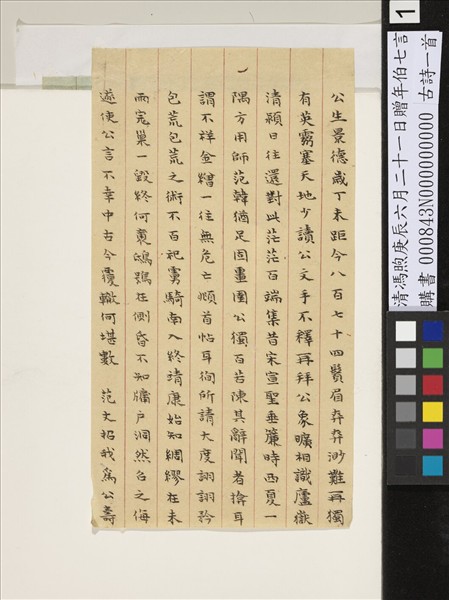 公生景德歲丁未距今八百七十四鬢眉奔奔渺難再獨
有英靈塞天地少讀公文手不釋再拜公象曠相識廬嶽
清潁日往還對此茫茫百端集昔宋宣聖垂簾時西夏一
隅方用師范韓猶足固疆圉公獨百若陳其辭聞者揜耳
謂不祥金繒一往無危亡頫首帖耳徇所請大度詡詡矜
包荒包荒之術不百祀虜騎南入終靖康始知綢繆在未
雨完巢一毀終何裏鴟鴞在側昏不知牖戶洞然召之侮
遂使公言不幸中古今覆轍何堪數 范文招我為公壽
1
清馮煦庚辰六月二十一日贈年伯七言
古詩一首
購書 000843N000000000